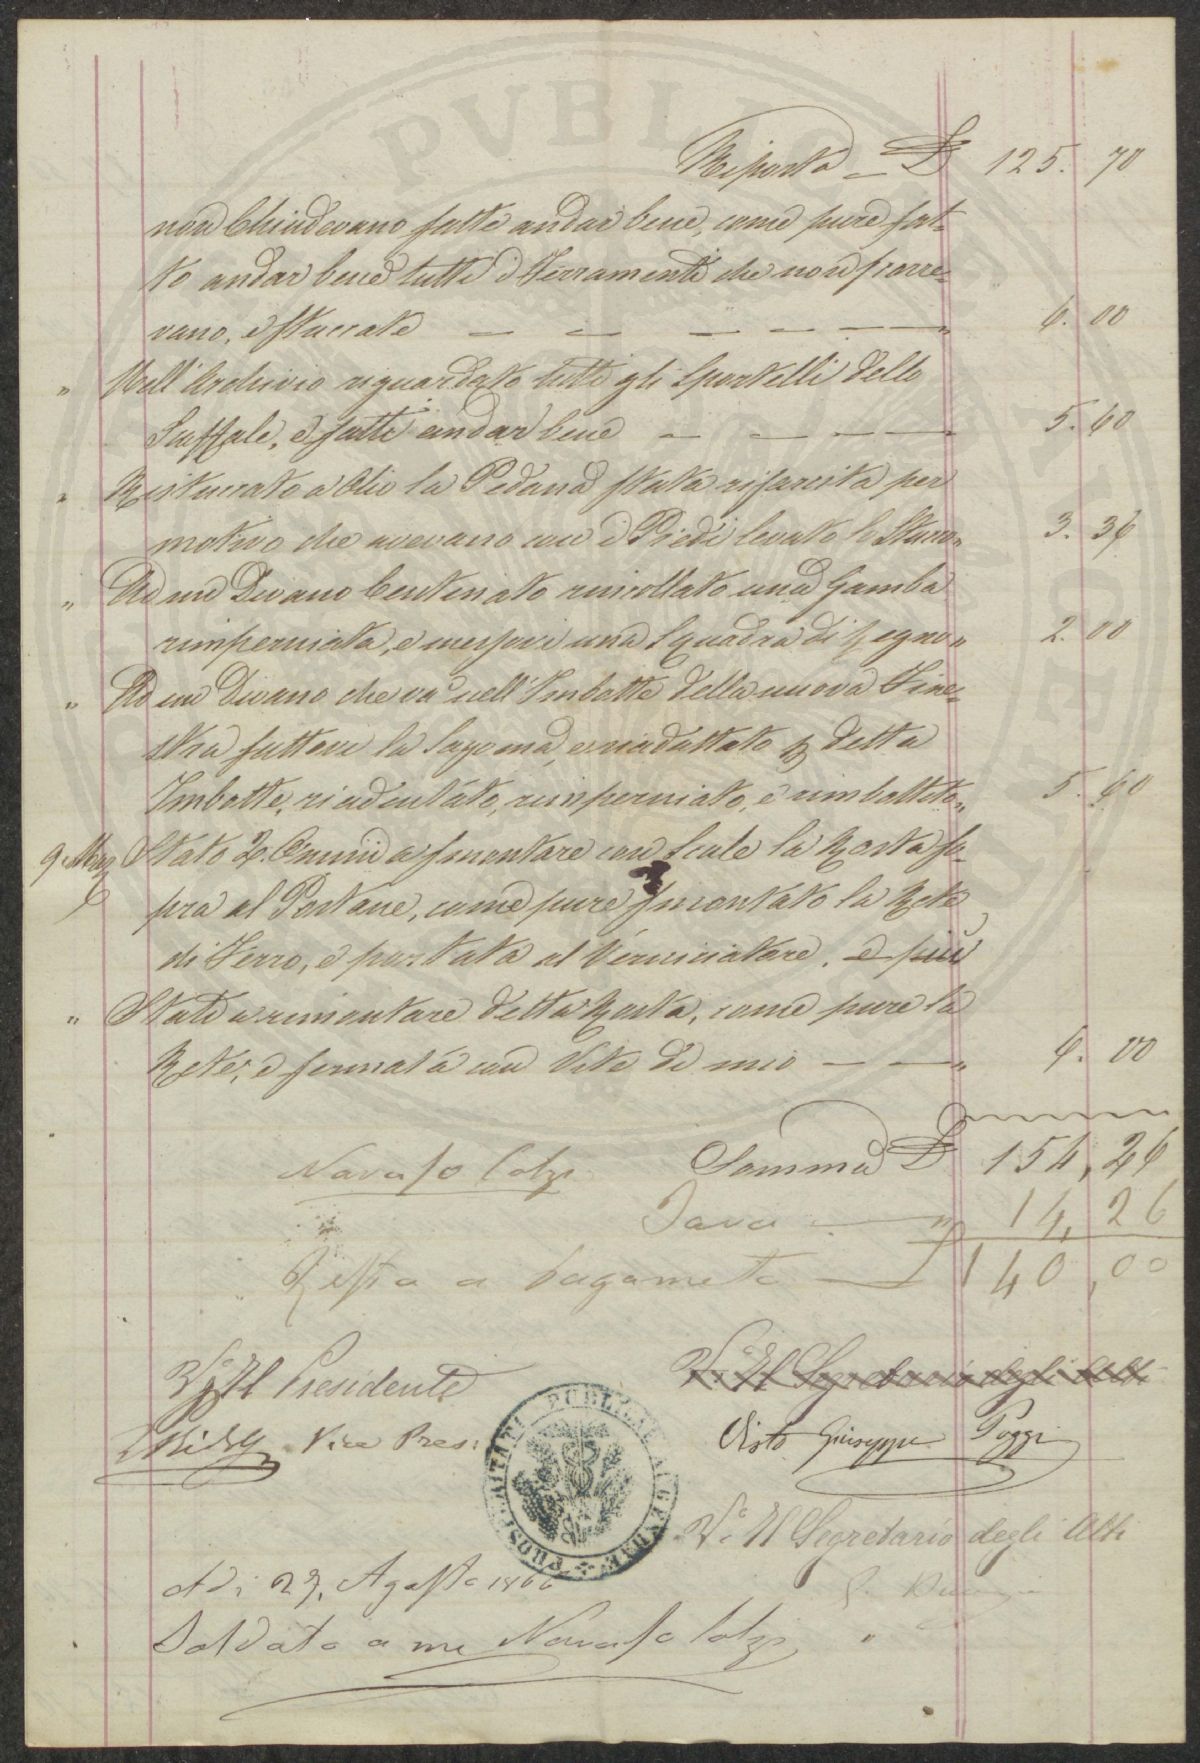 Riporto — £ 125. 70
non Chiudevano fatte andar bene, come pure fat-
to andar bene tutti i Ferramenti che non scorre-
vano, e stuccate — — — — — — „ 6. 00
„ Nell'Archivio riguardato tutti gli Sportelli dello
Scaffale, e fatti andar bene — — — — 5. 60
„ Ristuccato a Olio la Pedana stata rifarcita per
motivo che avevano con i Piedi levato lo Stucco„ 3. 36
„ Ad un Divano Centinato rincollato una Gamba
rimperniata, e messovi una Squadra di Legno„ 2. 00
„ Ad un Divano che va nell'Imbotte della nuova Fine-
stra fattovi la Sagoma, e riadattato detta
Imbotte, riadentato, rimperniato, e rimbottito„ 5. 60
9. Marzo Stato 2. Omini a smontare con Scale la Rosta so-
pra al Portone, come pure smontato la Rete
di Ferro, e portata al Verniciatore. e più
„ Stati a rimontare detta Rosta, come pure la
Rete, e fermata con Vite di mio — — „ 6. 00
Somma £ 154, 26
Navaso Colzi
Tara — „ 14, 26
Resta a pagamento — £ 140, 00
V.° Il Presidente
V.° Il Segretario degli Atti
Vice Pres:
Visto Giuseppe Poggi
PROSPERITATI PUBLICAE AUGENDAE
V.° Il Segretario degli Atti
A di 27, Agosto 1866
Saldato a me Navaso Colzi
PUBLICAE AUGENDAE